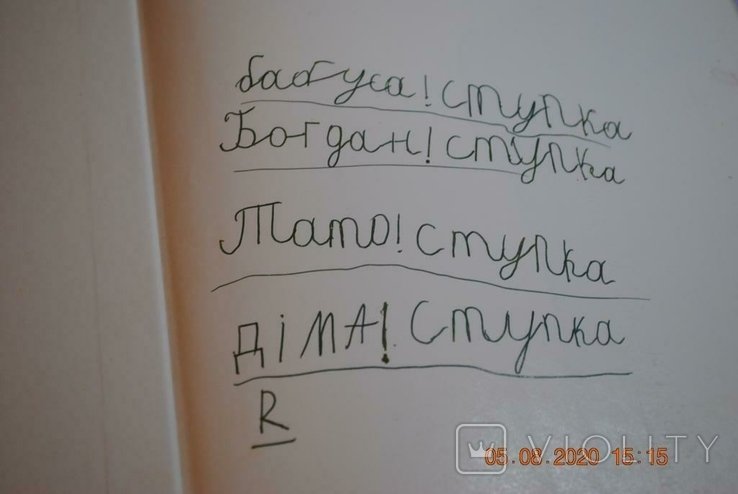 бабуся! ступка
Богдан! ступка
Тато! ступка
ДІМА! Ступка
R
VIOLITY
05.08.2020 15:15